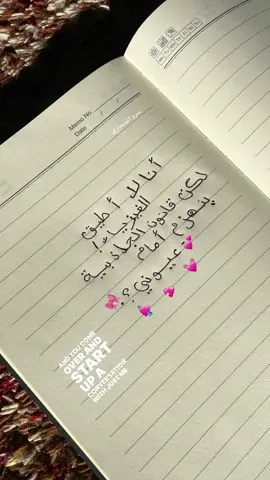 Memo No.
Date / /
أنا لا أطيق
الفيزياء!
لكن قانون الجاذبية
ينهزم أمام
عيوني؟.
AND YOU COME
OVER AND
START
UP A
CONVERSATION
WITH JUST ME